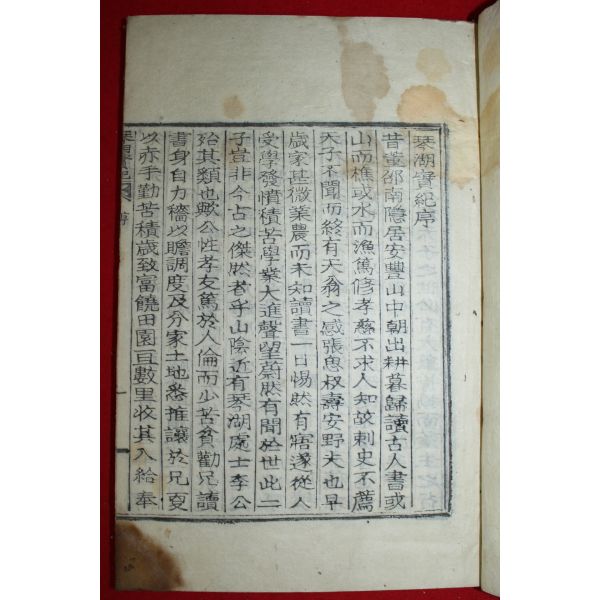 琴湖實紀序
昔董邵南隱居安豐山中朝出耕暮歸讀古人書或
山而樵或水而漁篤修孝慈不求人知故刺史不薦
天子不聞而終有天翁之感張思叔壽安野夫也早
歲家甚微業農而未知讀書一日惕然有寤遂從人
受學發憤積苦學業大進聲望蔚然有聞於世此二
子豈非今古之傑然者乎山陰近有琴湖處士李公
殆其類也歟公性孝友篤於人倫而少苦貧勸兄讀
書身自力穡以贍調度及分家土地悉推讓於兄夏
以赤手勤苦積歲致富饒田園亘數里收其入給奉
序